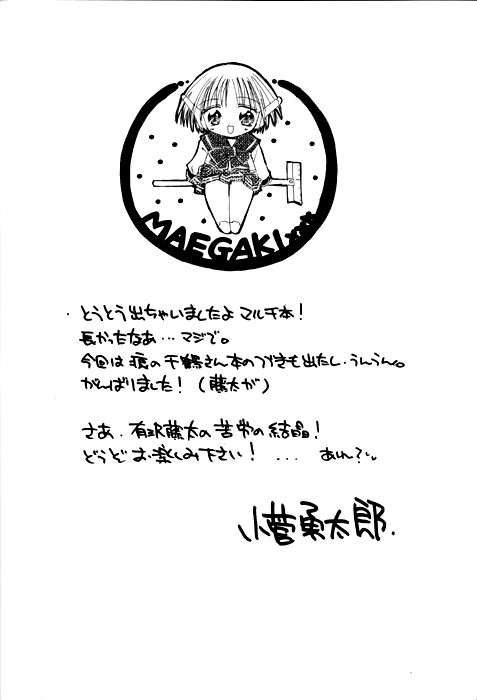 MAEGAKI
・とうとう出ちゃいましたよ マルチ本!
長かったなあ…マジで。
今回は痕の千鶴さん本のつづきも出たし、うんうん。
がんばりました!(藤太が)
さあ、有沢藤太の苦労の結晶!
どうぞお楽しみ下さい! ... あれ?
小菅勇太郎.